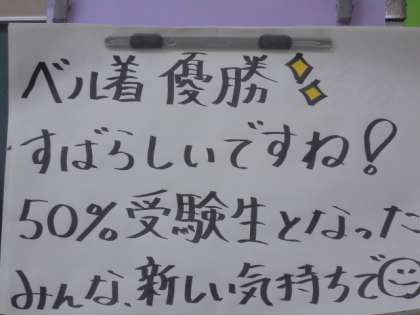 ベル着 優勝
すばらしいですね!
50%受験生となった
みんな、新しい気持ちで